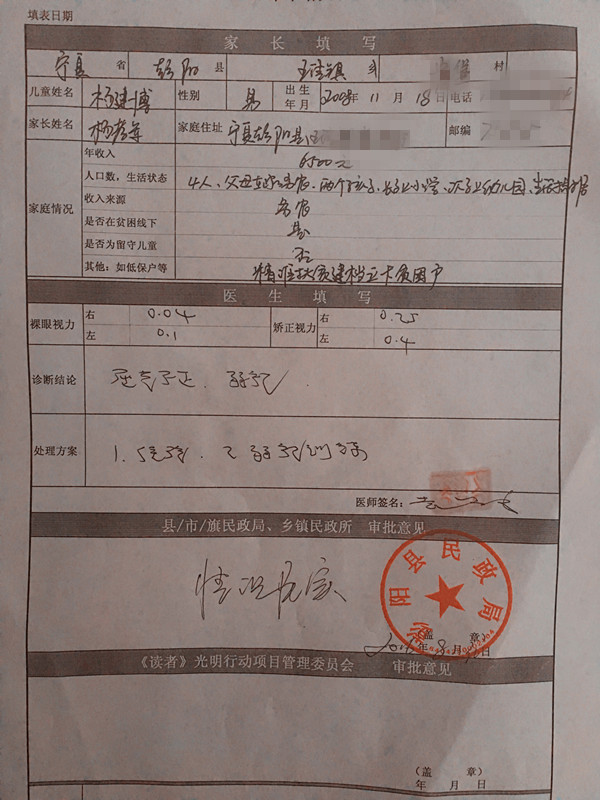 填表日期
家长填写
宁夏 省 彭阳 县 乡 村
儿童姓名 杨建博 性别 男 出生年月 2008年11月18日 电话
家长姓名 杨孝 家庭住址 宁夏彭阳县 邮编
家庭情况
年收入 6500元
人口数,生活状态 4人、父母务农、两个孩子、长子上小学、次子上幼儿园、
收入来源 务农
是否在贫困线下 是
是否为留守儿童 否
其他:如低保户等 精准扶贫建档立卡贫困户
医生填写
裸眼视力 右 0.04 矫正视力 右 0.25
左 0.1 左 0.4
诊断结论 屈光不正、弱视
处理方案 1. 配镜、2 弱视训练
医师签名:
县/市/旗民政局、乡镇民政所 审批意见
情况属实
彭阳县民政局
(盖 章)
年8月 日
《读者》光明行动项目管理委员会 审批意见
(盖 章)
年 月 日